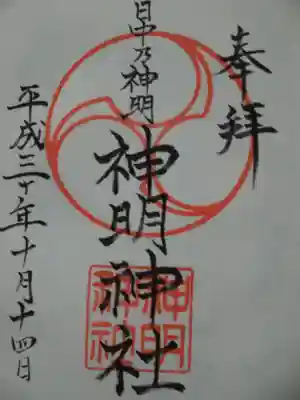 奉拝
日中乃神明
神明神社
神明
神社
平成三十年十月十四日